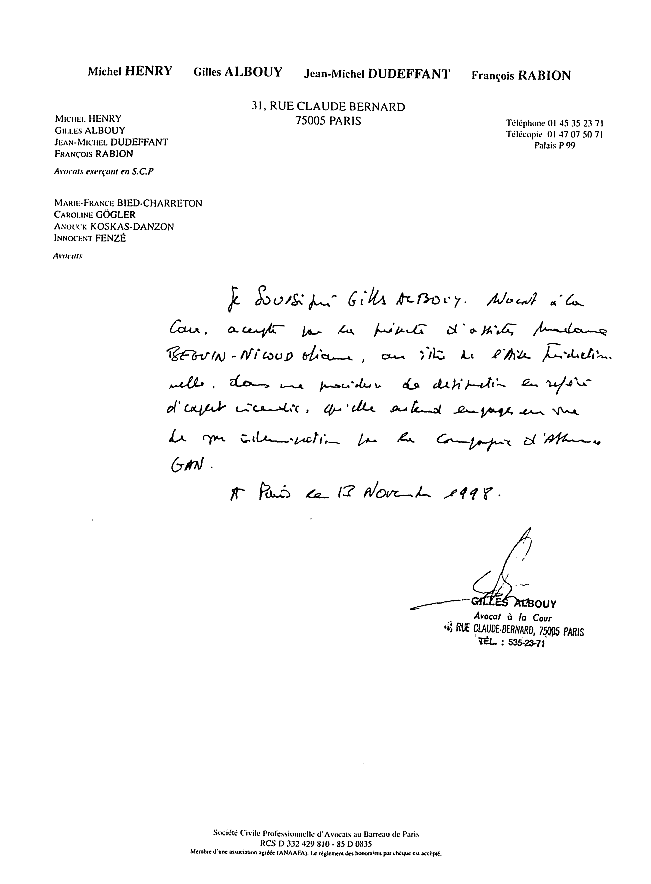 Michel HENRY Gilles ALBOUY Jean-Michel DUDEFFANT François RABION
31, RUE CLAUDE BERNARD
75005 PARIS
MICHEL HENRY
GILLES ALBOUY
JEAN-MICHEL DUDEFFANT
FRANÇOIS RABION
Avocats exerçant en S.C.P
Téléphone 01 45 35 23 71
Télécopie 01 47 07 50 71
Palais P 99
MARIE-FRANCE BIED-CHARRETON
CAROLINE GÖGLER
ANOUCK KOSKAS-DANZON
INNOCENT FENZÉ
Avocats
Je soussigné Gilles ALBOUY. Avocat à la
Cour, accepte par la présente d'assister Madame
BEGUIN-NICOUD, au titre de l'Aide Juridiction
nelle, dans une procédure de désignation en référé
d'expert incendie, qu'elle entend engager en vue
de son indemnisation par la Compagnie d'Assurances
GAN.
A Paris le 13 Novembre 1998.
GILLES ALBOUY
Avocat à la Cour
RUE CLAUDE-BERNARD, 75005 PARIS
TÉL. : 535-23-71
Société Civile Professionnelle d'Avocats au Barreau de Paris
RCS D 332 429 810 - 85 D 0835
Membre d'une association agréée (ANAAFA). Le règlement des honoraires par chèque est accepté.